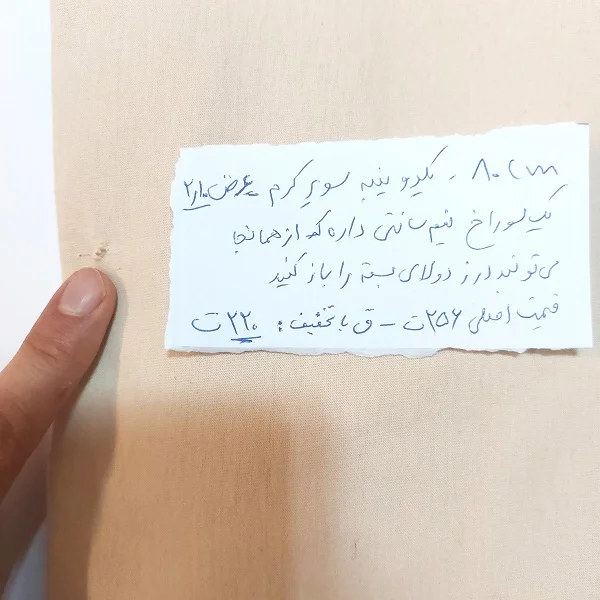 ۸۰ cm - یکرو پنبه سوپر کرم - عرض ۲٫۱۰
یک سوراخ نیم سانتی داره که از همانجا
می‌توانید درز دولای بسته را باز کنید
قیمت اصلی ۲۵۶ ت - ق با تخفیف : ۲۲۰ ت